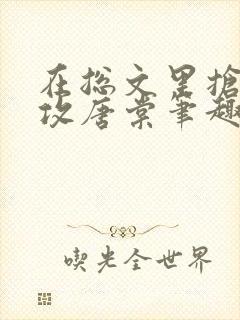 在总文里抢
攻唐棠笔趣
喫光全世界